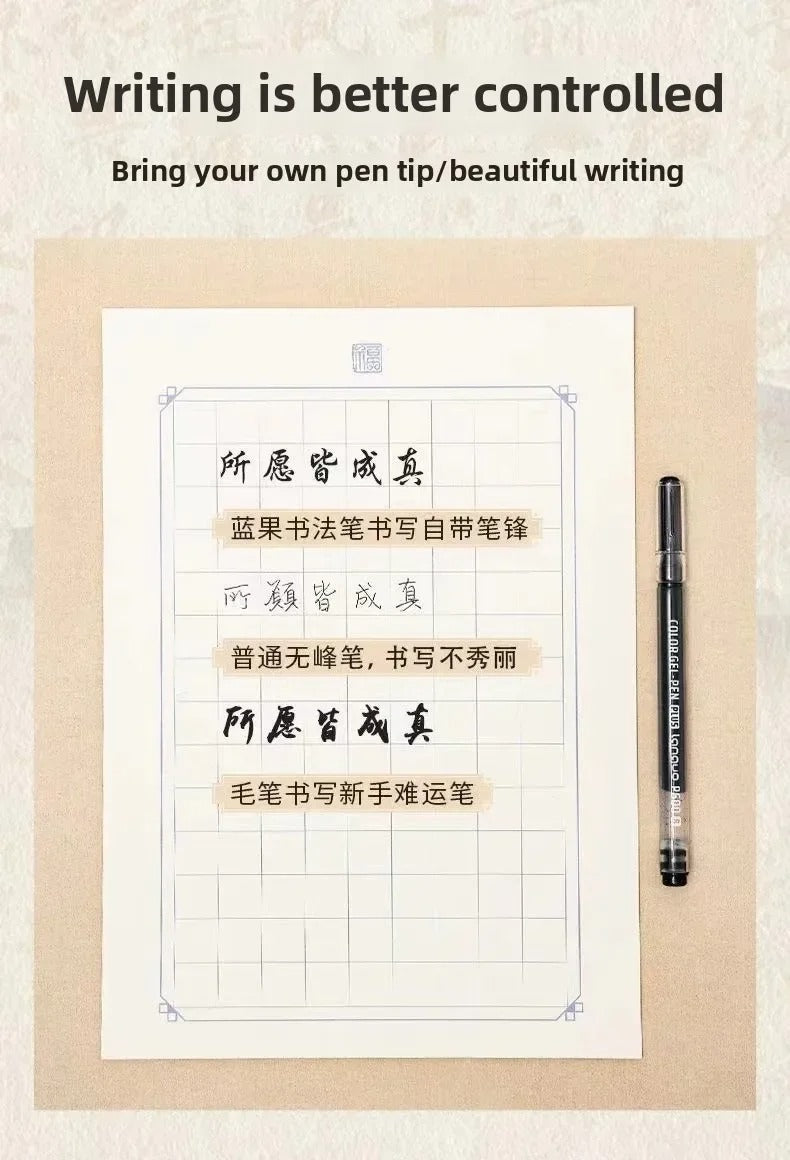 Writing is better controlled
Bring your own pen tip/beautiful writing
福
所愿皆成真
蓝果书法笔书写自带笔锋
所願皆成真
普通无峰笔，书写不秀丽
所愿皆成真
毛笔书写新手难运笔
COLOR GEL-PEN PLUS